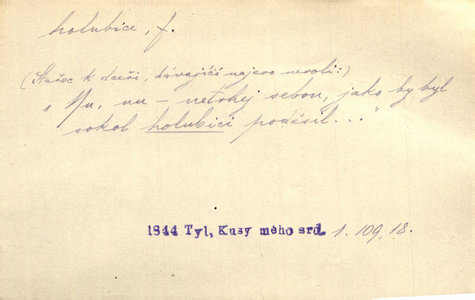 holubice, f.
(Stařec k dceři, dávající najevo nevoli:)
„Nu, nu – netrhej sebou, jako by byl
sokol holubici poděsil..."
1844 Tyl, Kusy mého srd. 1. 109, 18.